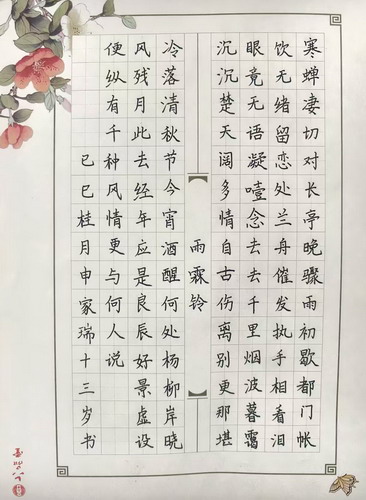 寒蝉凄切对长亭晚骤雨初歇都门帐
饮无绪留恋处兰舟催发执手相看泪
眼竟无语凝噎念去去千里烟波暮霭
沉沉楚天阔多情自古伤离别更那堪
雨霖铃
冷落清秋节今宵酒醒何处杨柳岸晓
风残月此去经年应是良辰好景虚设
便纵有千种风情更与何人说
己巳桂月申家瑞十三岁书